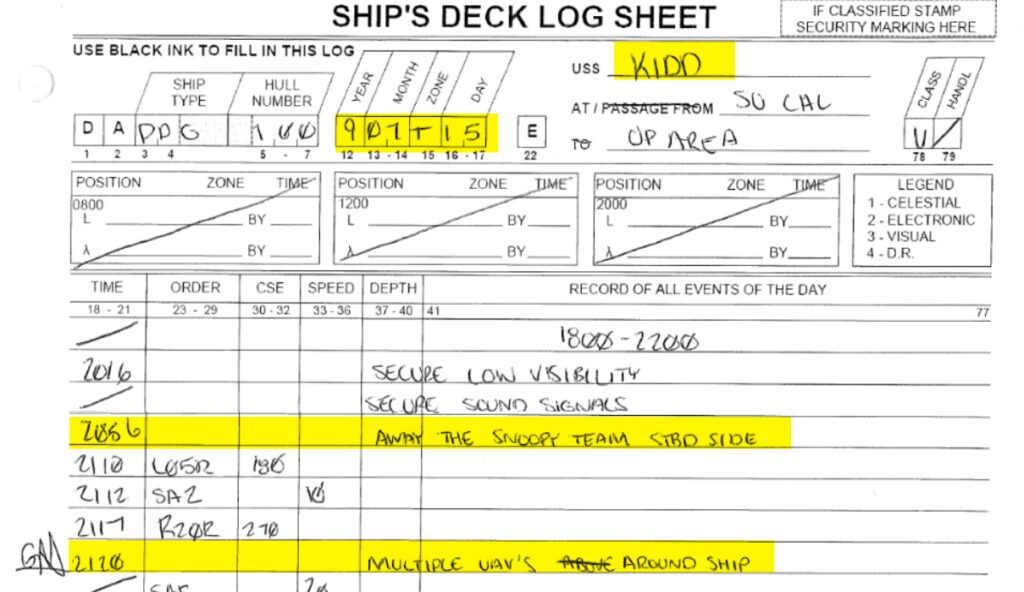 SHIP'S DECK LOG SHEET
IF CLASSIFIED STAMP
SECURITY MARKING HERE
USE BLACK INK TO FILL IN THIS LOG
SHIP TYPE
HULL NUMBER
YEAR
MONTH
ZONE
DAY
USS KIDD
AT / PASSAGE FROM SO CAL
TO OP AREA
CLASS
HANDL
D A DDG 100 907T15 E U
1 2 3 4 5 - 7 12 13 - 14 15 16 - 17 22 78 79
POSITION ZONE TIME
0800
L BY
λ BY
POSITION ZONE TIME
1200
L BY
λ BY
POSITION ZONE TIME
2000
L BY
λ BY
LEGEND
1 - CELESTIAL
2 - ELECTRONIC
3 - VISUAL
4 - D.R.
TIME ORDER CSE SPEED DEPTH RECORD OF ALL EVENTS OF THE DAY
18 - 21 23 - 29 30 - 32 33 - 36 37 - 40 41 77
1800-2200
2016 SECURE LOW VISIBILITY
SECURE SOUND SIGNALS
2056 AWAY THE SNOOPY TEAM STBD SIDE
2110 L05R 180
2112 SAZ 10
2117 R20R 270
2120 MULTIPLE UAV'S ABOVE AROUND SHIP